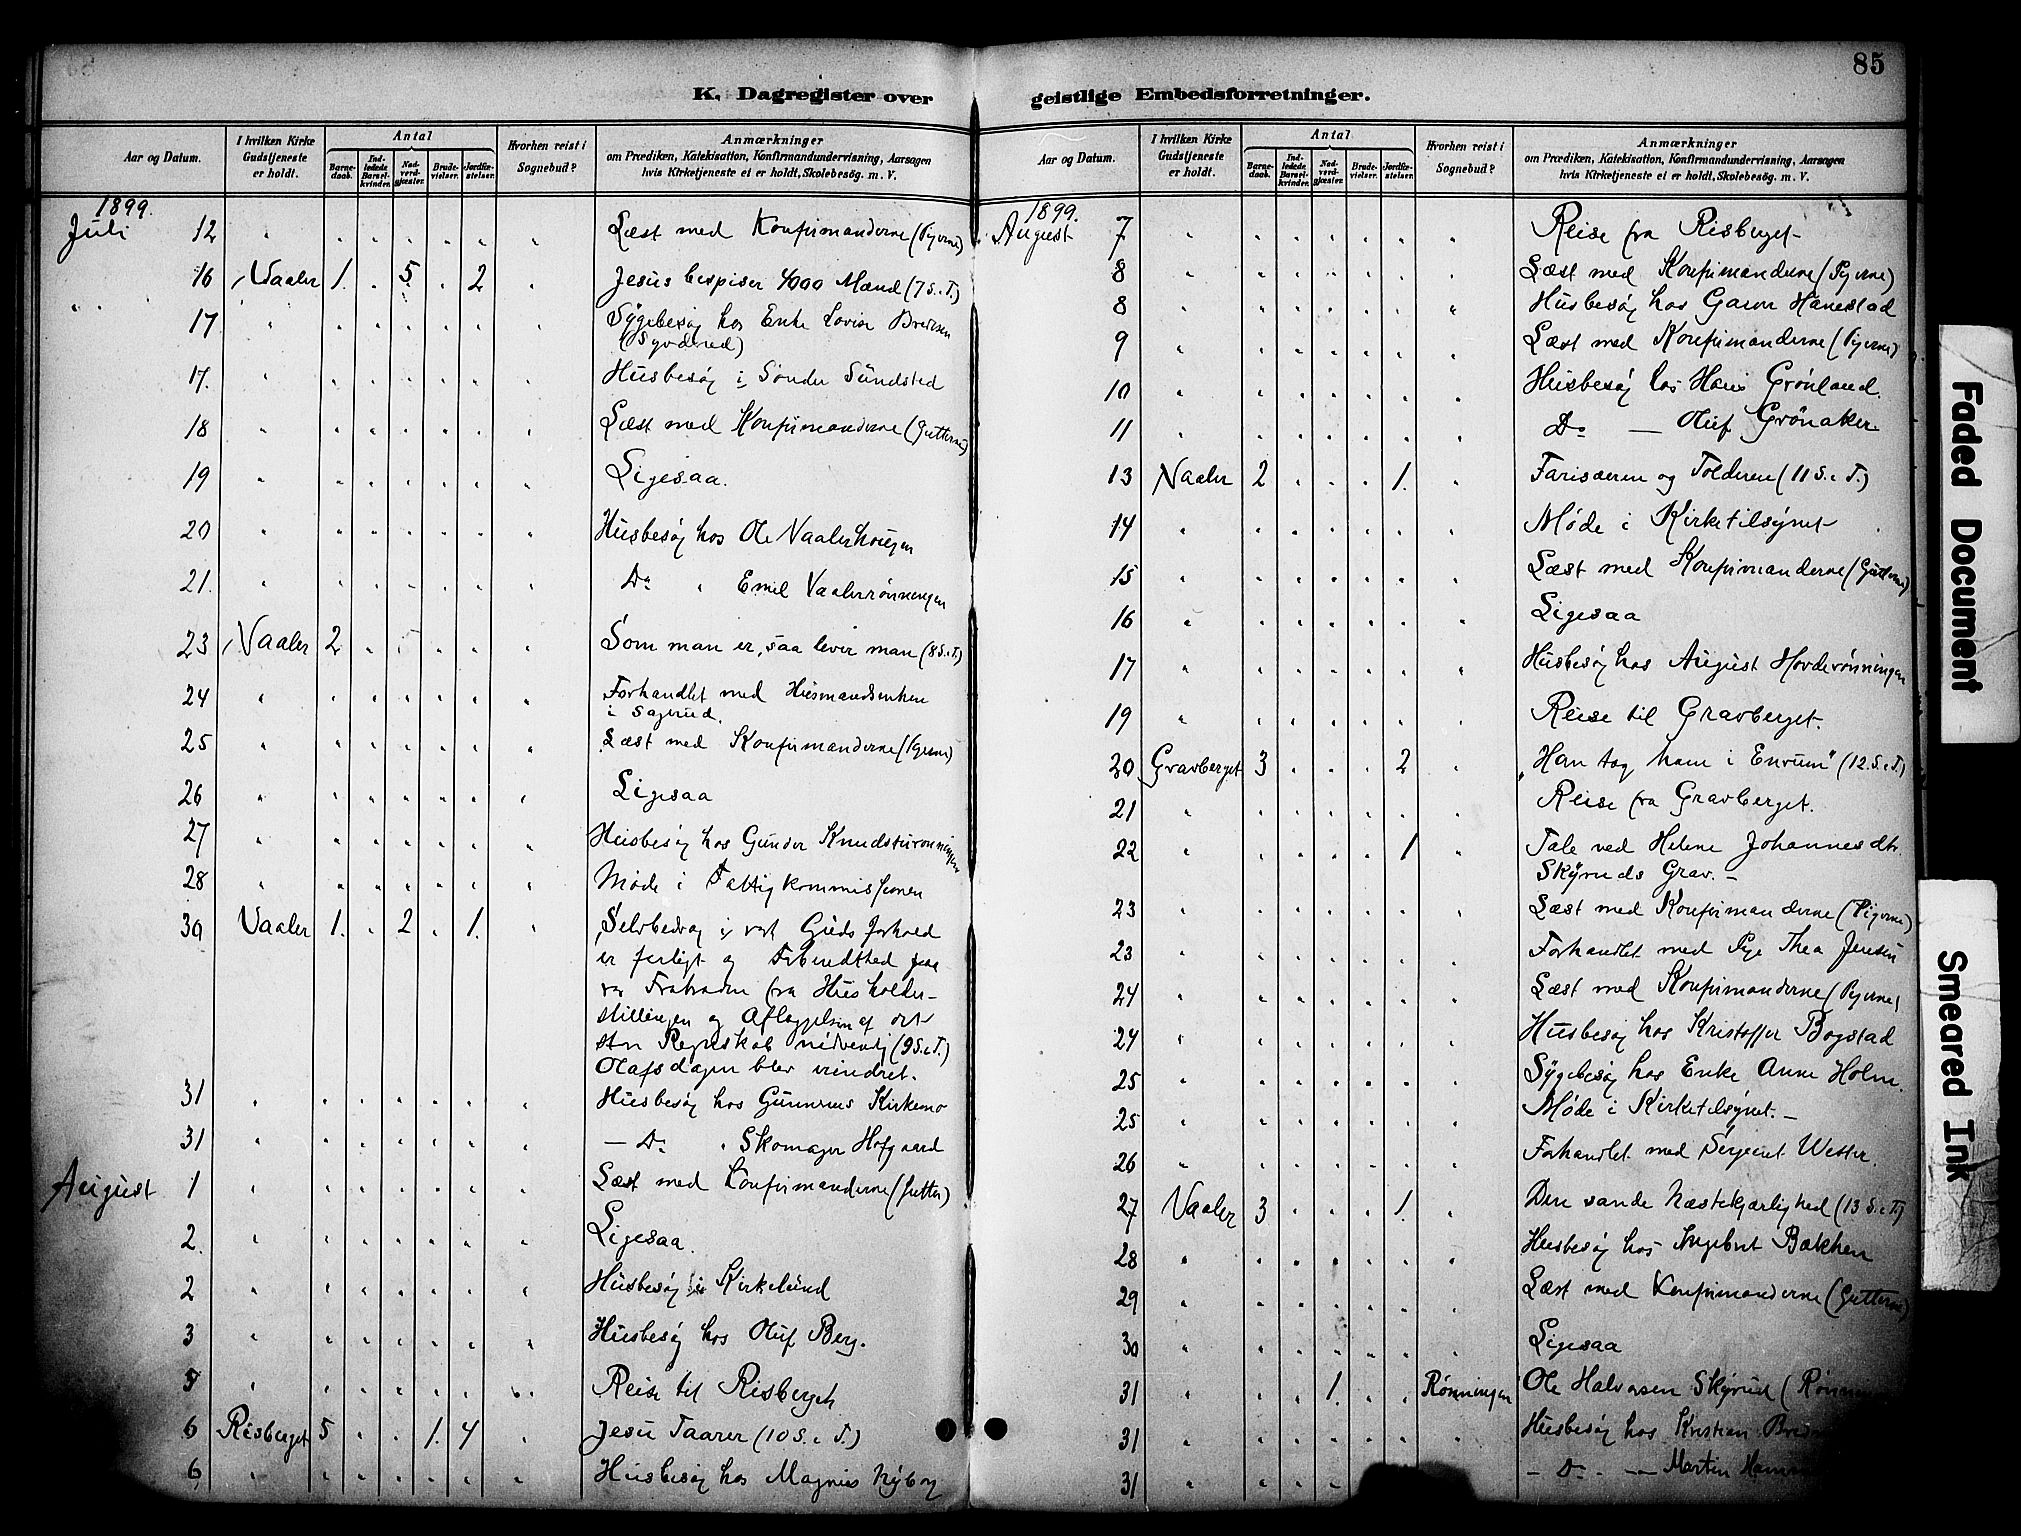 85
K. Dagregister over geistlige Embedsforretninger.
Aar og Datum.
I hvilken Kirke Gudstjeneste er holdt.
Antal
Barne-daab.
Ind-ledede Barsel-kvinder.
Nad-verd-gjæster.
Brude-vielser.
Jordfæ-stelser.
Hvorhen reist i Sognebud?
Anmærkninger
om Prædiken, Katekisation, Konfirmandundervisning, Aarsagen
hvis Kirketjeneste ei er holdt, Skolebesøg. m. V.
1899.
Juli 12 Læst med Konfirmanderne (Pigerne)
16 Vaaler 1. 5. 2 Jesus bespiser 4000 Mænd (7 S. e. T.)
17 Sygebesøg hos Enke Lovise Bredesen
17. Husbesøg i Søndre Sundsted
18 Læst med Konfirmanderne (Gutterne)
19 Ligesaa.
20 Husbesøg hos Ole Vaalerhougen
21. Do " Emil Vaalerrønningen
23 Vaaler 2 Som man er, saa lever man (8 S. e. T.)
24 Forhandlet med Husmandsenken
i Sagerud.
25 Læst med Konfirmanderne (Pigerne)
26 Ligesaa
27 Husbesøg hos Gunder
28 Møde i Fattigkommissionen
30 Vaaler 1. 2 1. Selvbedrag i vort Guds forhold
er farligt og
Fratræden fra Husholder-
stillingen og Aflæggelsen af det
store Regnskab nødvendig (9 S. e. T.)
Olafsdagen blev mindret.
31 Husbesøg hos Gunnerus Kirkemo
31 – Do " Skomager Hofgaard
August 1 Læst med Konfirmanderne (Gutter)
2. Ligesaa.
2 Husbesøg i Kirkelund
3 Husbesøg hos Oluf Berg.
5 Reise til Risberget
6 Risberget 5 1. 4 Jesu Taarer (10 S. e. T.)
6 Husbesøg hos Magnus Nyborg
K. Dagregister over geistlige Embedsforretninger.
Aar og Datum.
I hvilken Kirke Gudstjeneste er holdt.
Antal
Barne-daab.
Ind-ledede Barsel-kvinder.
Nad-verd-gjæster.
Brude-vielser.
Jordfæ-stelser.
Hvorhen reist i Sognebud?
Anmærkninger
om Prædiken, Katekisation, Konfirmandundervisning, Aarsagen
hvis Kirketjeneste ei er holdt, Skolebesøg. m. V.
1899.
August 7 Reise fra Risberget
8 Læst med Konfirmanderne (Pigerne)
8 Husbesøg hos Hanestad
9 Læst med Konfirmanderne (Pigerne)
10 Husbesøg hos Hans Grønland.
11 Do – Oluf Grønaker
13 Vaaler 2 1. Farisæeren og Tolderen (11 S. e. T.)
14 Møde i Kirketilsynet
15 Læst med Konfirmanderne (Gutterne)
16 Ligesaa
17 Husbesøg hos August Horderønningen
19 Reise til Gravberget.
20 Gravberget 3 2 "Han tog ham i Enrum" (12. S. e. T.)
21 Reise fra Gravberget.
22 1 Tale ved Helene Johannesdtr.
Skyruds Grav. –
23 Læst med Konfirmanderne (Pigerne)
23 Forhandlet med Pige Thea Jensen
24 Læst med Konfirmanderne (Pigerne)
24 Husbesøg hos Kristoffer Bogstad
25 Sygebesøg hos Enke Anne Holm.
25 Møde i Kirketilsynet. –
26 Forhandlet med Sergeant Wester.
27 Vaaler 3 1. Den sande Næstekjærlighed (13 S. e. T.)
28 Husbesøg hos Ingebret Bakken
29 Læst med Konfirmanderne (Gutterne)
30 Ligesaa
31 1. Rønningen Ole Halvorsen Skyrud
31 Husbesøg hos Kristian
31 – Do – Martin
Faded Document
Smeared Ink